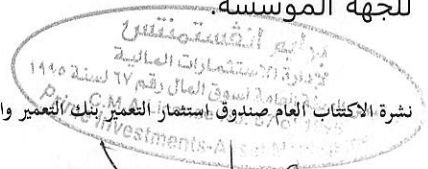 للجهة المؤسسة.
برايم انفستمنتس
لإدارة الاستثمارات المالية
لسوق المال رقم ٦٧ لسنة ١٩٩٥
نشرة الاكتتاب العام صندوق استثمار التعمير بنك التعمير وا